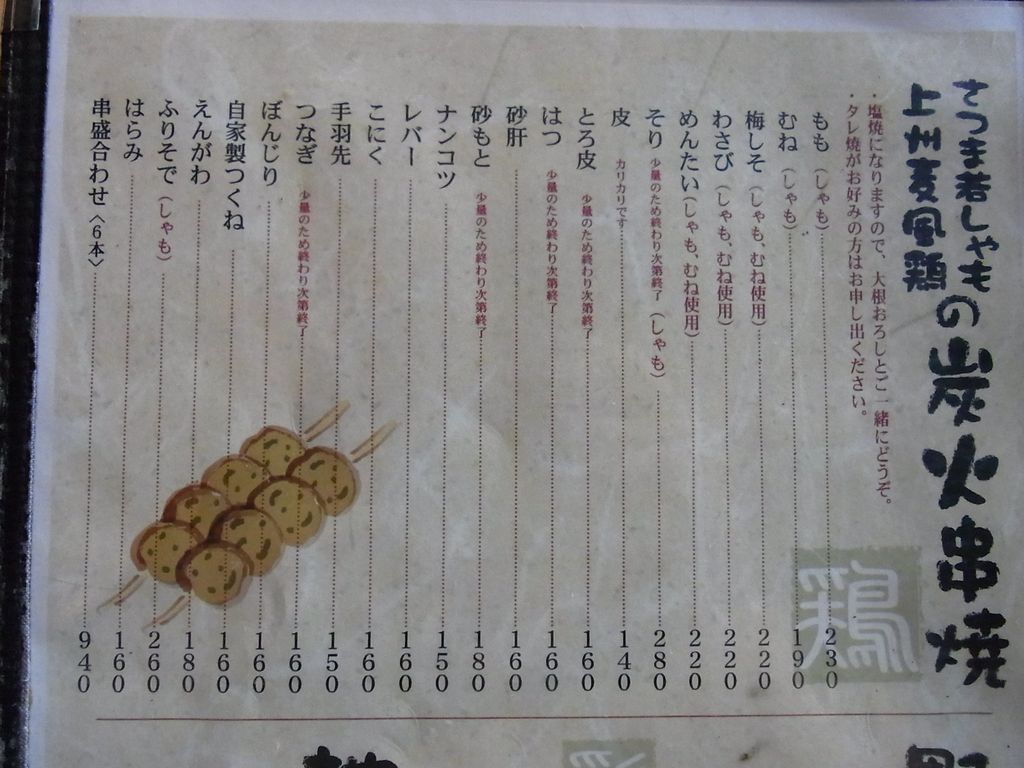 さつま若しゃも
上州麦風鶏
の炭火串焼
・塩焼になりますので、大根おろしとご一緒にどうぞ。
・タレ焼がお好みの方はお申し出ください。
鶏
もも（しゃも） 230
むね（しゃも） 190
梅しそ（しゃも、むね使用） 220
わさび（しゃも、むね使用） 220
めんたい（しゃも、むね使用） 220
そり 少量のため終わり次第終了（しゃも） 280
皮 カリカリです 140
とろ皮 少量のため終わり次第終了 160
はつ 少量のため終わり次第終了 160
砂肝 160
砂もと 少量のため終わり次第終了 180
ナンコツ 150
レバー 160
こにく 160
手羽先 150
つなぎ 少量のため終わり次第終了 160
ぼんじり 160
自家製つくね 160
えんがわ 180
ふりそで（しゃも） 260
はらみ 160
串盛合わせ〈6本〉 940